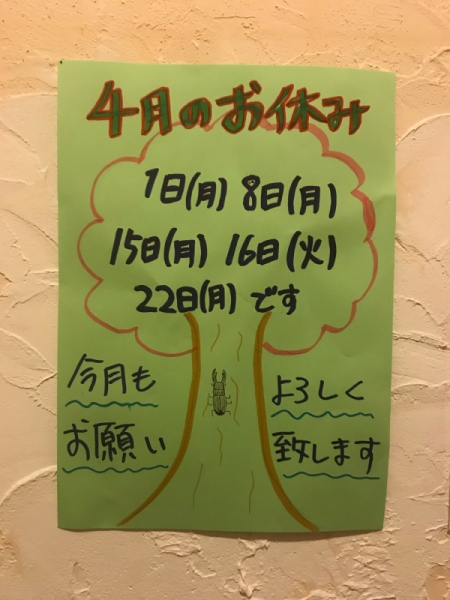 4月のお休み
1日(月) 8日(月)
15日(月) 16日(火)
22日(月) です
今月も よろしく
お願い 致します